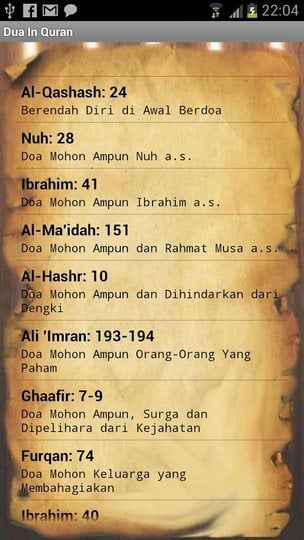 22:04
Dua In Quran
Al-Qashash: 24
Berendah Diri di Awal Berdoa
Nuh: 28
Doa Mohon Ampun Nuh a.s.
Ibrahim: 41
Doa Mohon Ampun Ibrahim a.s.
Al-Ma'idah: 151
Doa Mohon Ampun dan Rahmat Musa a.s.
Al-Hashr: 10
Doa Mohon Ampun dan Dihindarkan dari
Dengki
Ali 'Imran: 193-194
Doa Mohon Ampun Orang-Orang Yang
Paham
Ghaafir: 7-9
Doa Mohon Ampun, Surga dan
Dipelihara dari Kejahatan
Furqan: 74
Doa Mohon Keluarga yang
Membahagiakan
Ibrahim: 40